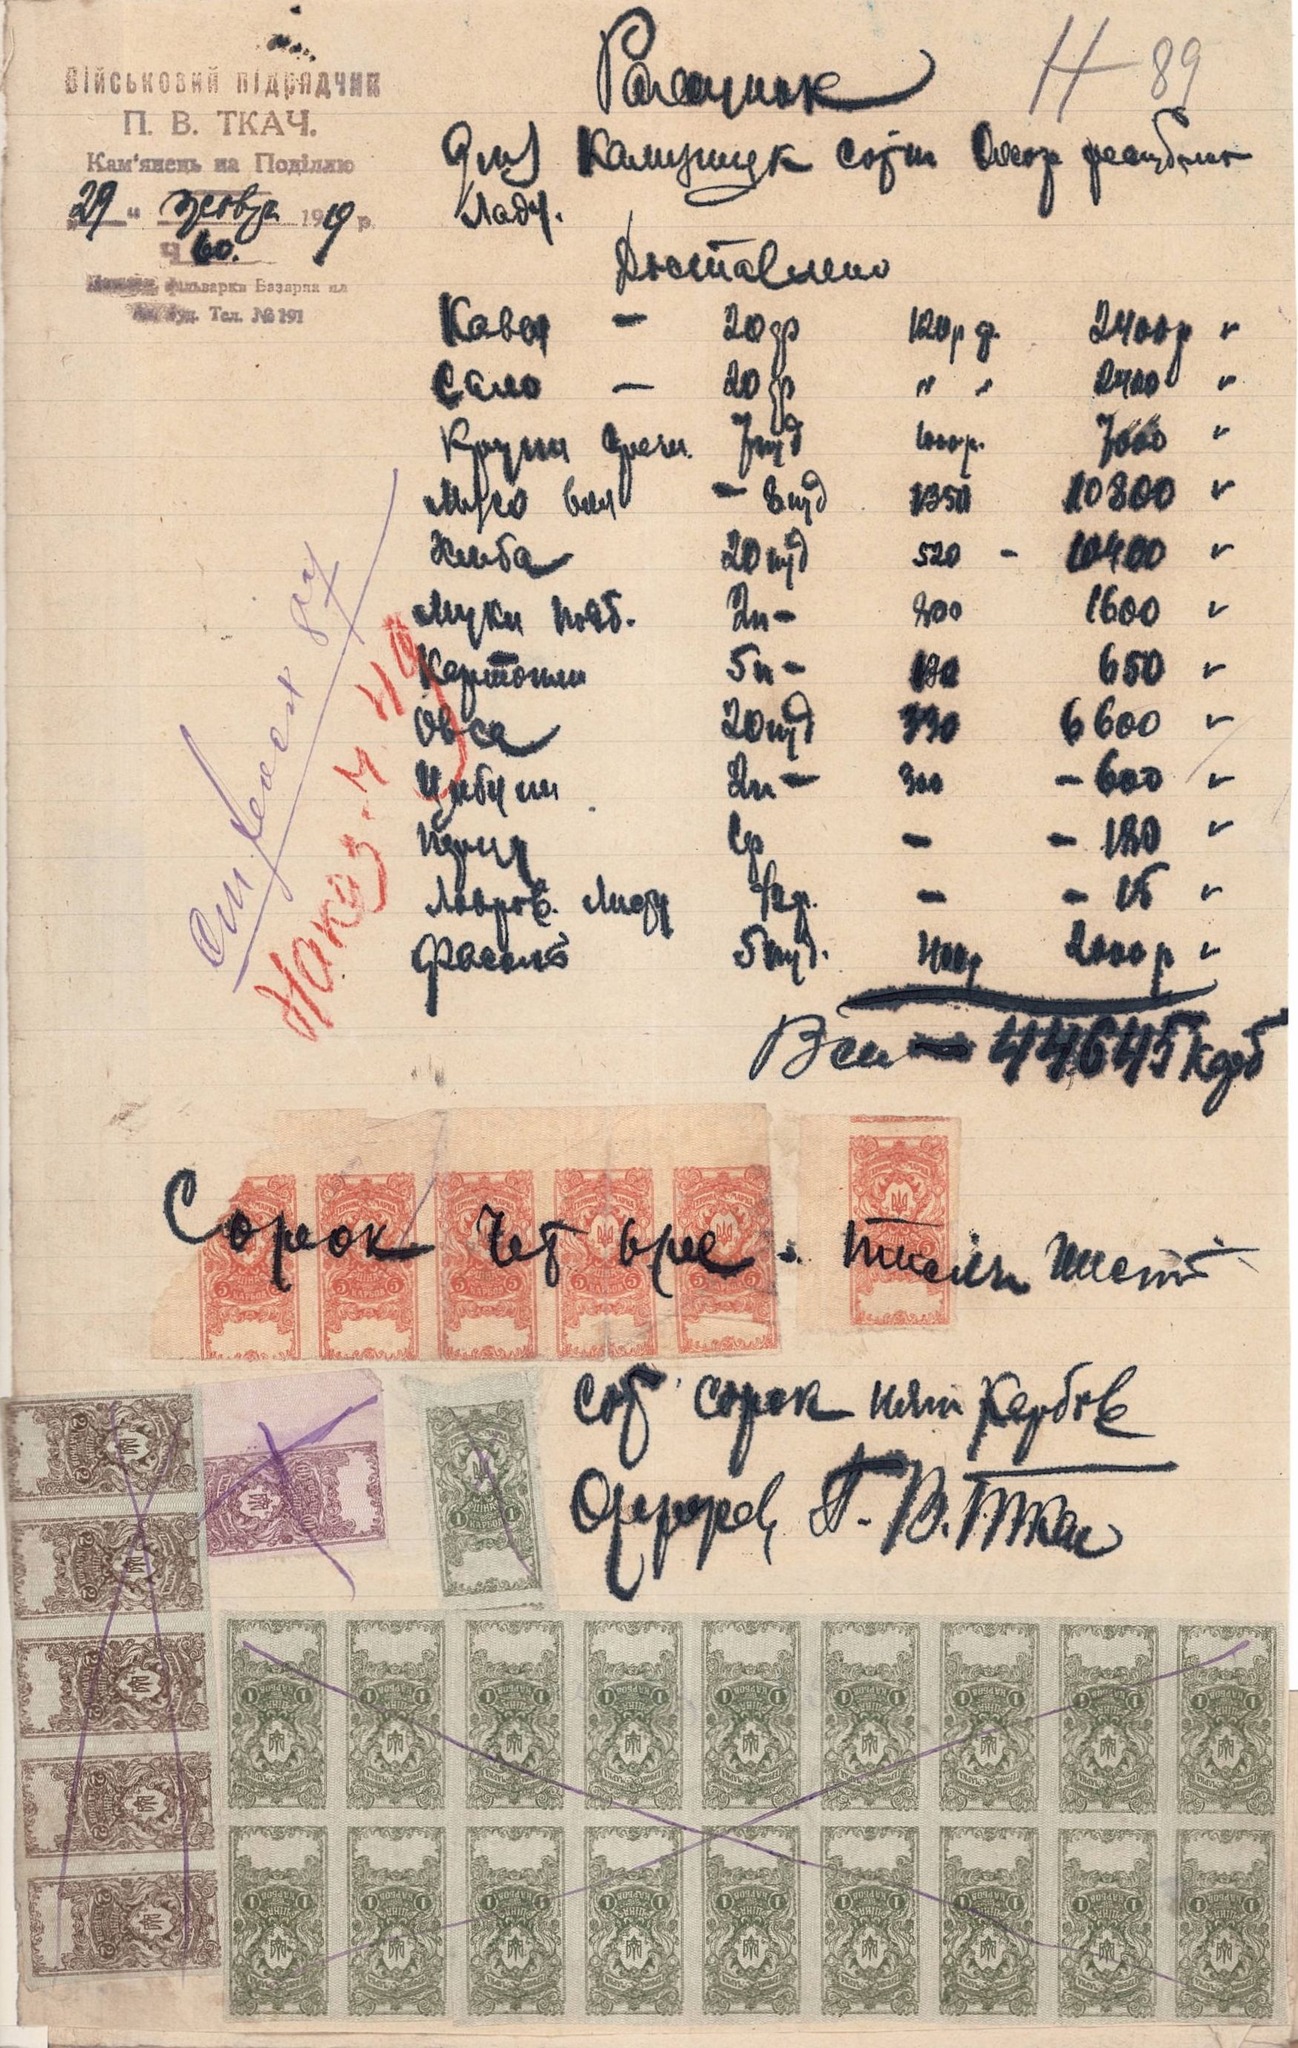 Військовий підрядчик
П. В. ТКАЧ.
Кам'янець на Поділлю
„29" жовтня 1919 р.
Ч 60.
фільварки Базарна пл
буд. Тел. № 191
Рахунок
Н 89
Для Калишцк сотні Охор республік
Ладу.
Доставлено
Кава — 20 ф 120 р ф. 2400 р "
Сало — 20 ф " " 2400 "
Крупи греч. 7 пуд 1000 р. 7000 "
Мясо вол — 8 пуд 1350 10800 "
Хліба 20 пуд 520 - 10400 "
Муки 2 п - 800 1600 "
Картоплі 5 п - 130 650 "
Овса 20 пуд 330 6600 "
Цибулі 2 п - 300 - 600 "
Перцу 1 ф - - 180 "
Лавров. Листу ½ ф. - - 15 "
Фасолі 5 пуд. 400 р 2000 р "
Всі — 44645 карб
Наказ. ч. 49
Сорок чотыре тисячи шест
сот сорок пять Карбов
П. В. Ткач